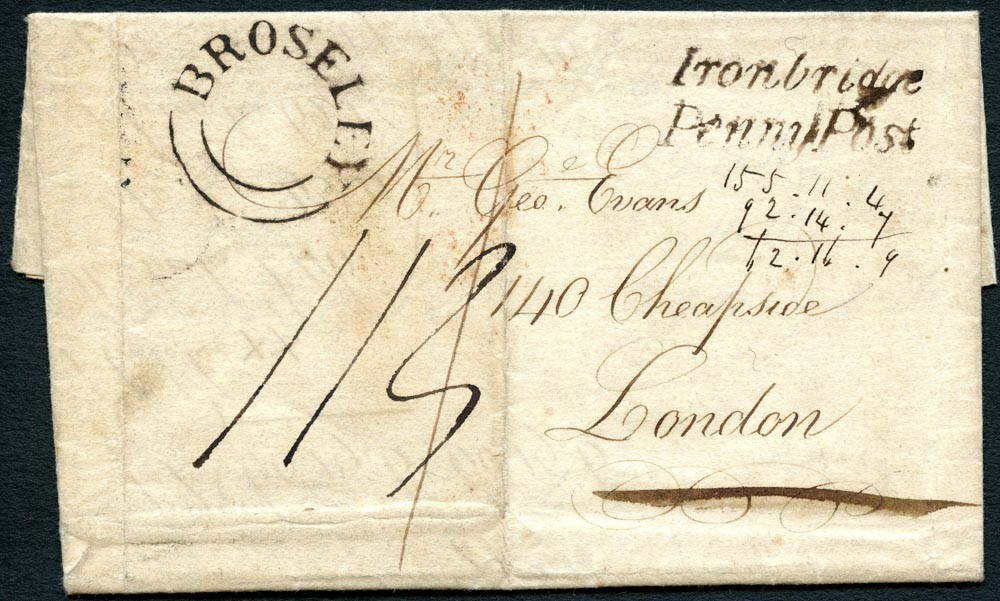 BROSELEY
Ironbridge
Penny Post
Mr. Geo. Evans
140 Cheapside
London
155.11.4
92.14.7
62.16.9